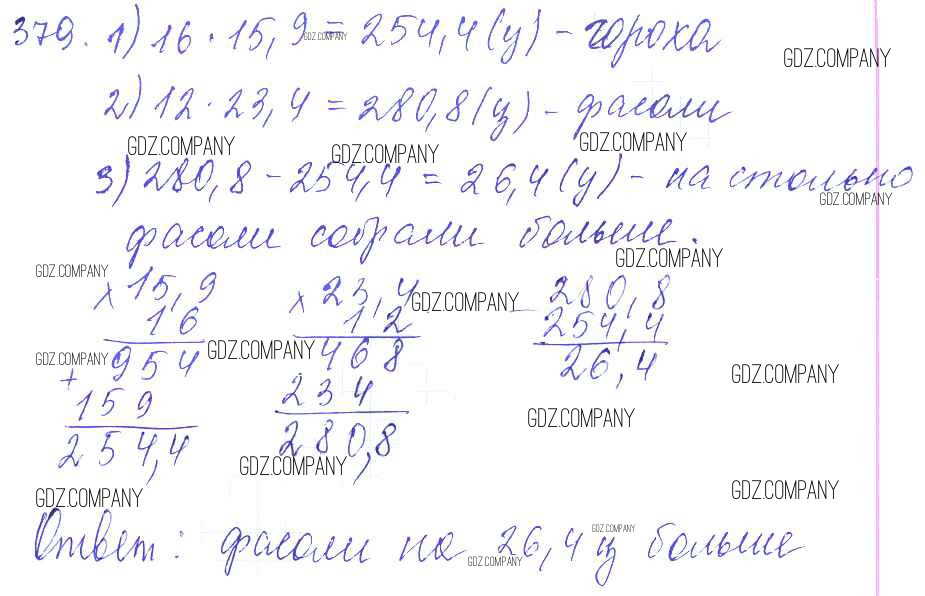 379. 1) 16 · 15,9 = 254,4 (ц) - гороха
GDZ.COMPANY
GDZ.COMPANY
2) 12 · 23,4 = 280,8 (ц) - фасоли
GDZ.COMPANY GDZ.COMPANY GDZ.COMPANY
3) 280,8 - 254,4 = 26,4 (ц) - на столько
GDZ.COMPANY
фасоли собрали больше.
GDZ.COMPANY GDZ.COMPANY
× 15,9 × 23,4 GDZ.COMPANY - 280,8
16 12 254,4
GDZ.COMPANY 954 GDZ.COMPANY 468 26,4
GDZ.COMPANY
+ 159 234 GDZ.COMPANY
254,4 280,8
GDZ.COMPANY
GDZ.COMPANY GDZ.COMPANY
Ответ: фасоли на 26,4 ц больше
GDZ.COMPANY
GDZ.COMPANY